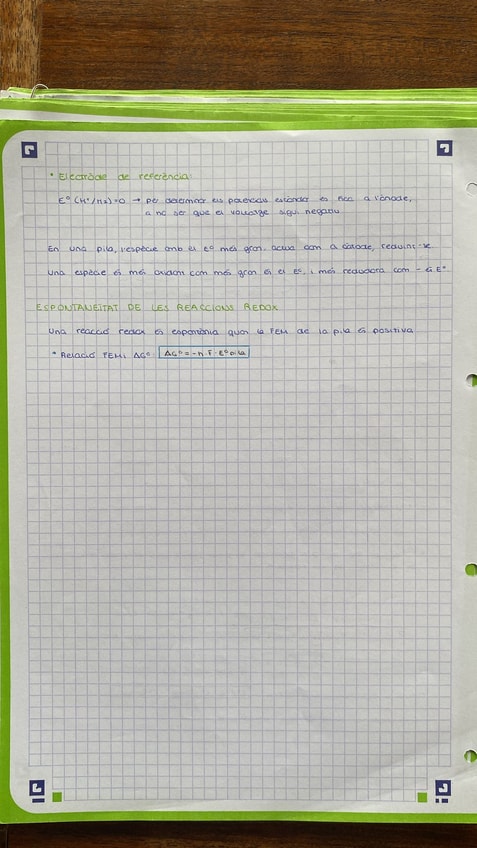 * Elèctrode de referència:
E° (H⁺/H₂)=0 → per determinar els potencials estàndar es fica a l'ànode,
a no ser que el voltatge sigui negatiu
En una pila, l'espècie amb el E° més gran, actua com a càtode, reduint-se.
Una espècie és més oxidant com més gran és el E°, i més reductora com - és E°
ESPONTANEÏTAT DE LES REACCIONS REDOX
Una reacció redox és espontània quan la FEM de la pila és positiva
* Relació FEM i ΔG°: ΔG° = -n · F · E° pila